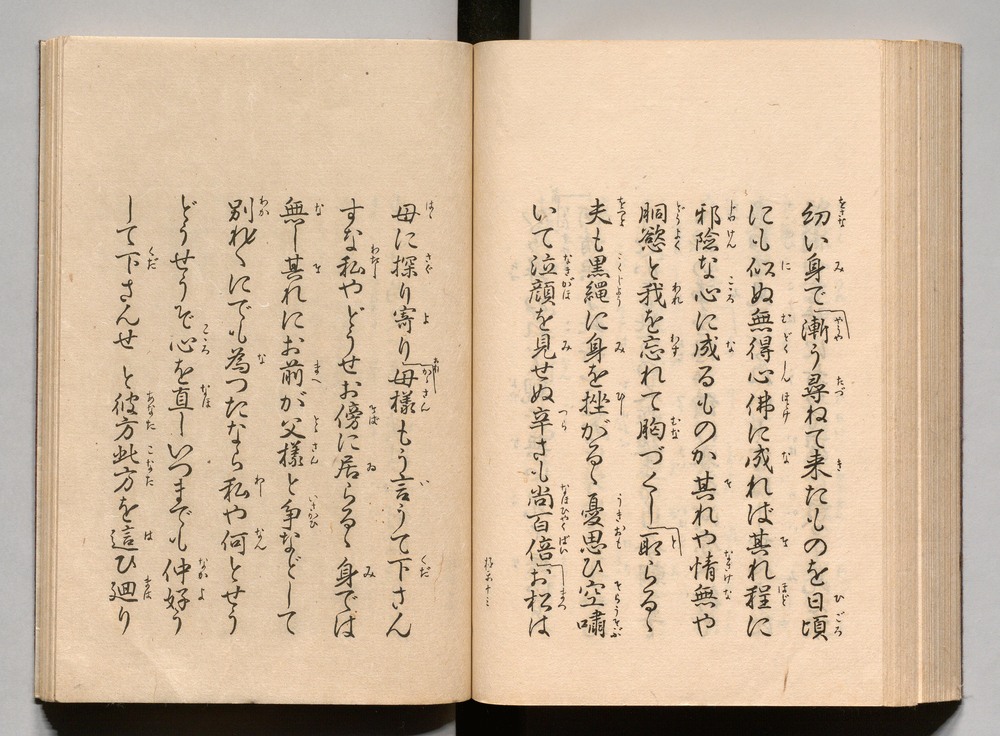 幼い身で漸う尋ねて来たものを日頃
にも似ぬ無得心佛に成れば其れ程に
邪険な心に成るものか其れや情無や
胴慾と我を忘れて胸づくし取らるゝ
夫も黒縄に身を挫がるゝ憂思ひ空嘯
いて泣顔を見せぬ辛さも尚百倍お松は
母に探り寄り母様もう言うて下さん
すな私やどうせお傍に居らるゝ身では
無し其れにお前が父様と争などして
別れ〳〵にでも為つたなら私や何とせう
どうせうぞ心を直しいつまでも仲好う
して下さんせ と彼方此方を這ひ廻り